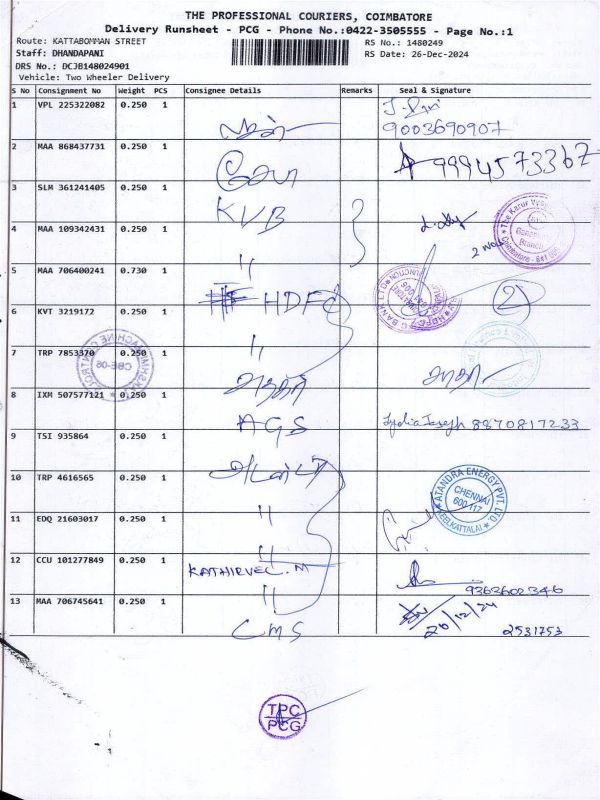 THE PROFESSIONAL COURIERS, COIMBATORE
Delivery Runsheet - PCG - Phone No.:0422-3505555 - Page No.:1
Route: KATTABOMMAN STREET
RS No.: 1480249
Staff: DHANDAPANI
RS Date: 26-Dec-2024
DRS No.: DCJB148024901
Vehicle: Two Wheeler Delivery
S No Consignment No Weight PCS Consignee Details Remarks Seal & Signature
1 VPL 225322082 0.250 1
9003690907
2 MAA 868437731 0.250 1
9994573367
3 SLM 361241405 0.250 1 KVB
4 MAA 109342431 0.250 1 "
5 MAA 706400241 0.730 1 HDFC
2
6 KVT 3219172 0.250 1 "
7 TRP 7853370 0.250 1
8 IXM 507577121 0.250 1 AGS
Lydia Joseph 8870817233
9 TSI 935864 0.250 1
10 TRP 4616565 0.250 1 "
CHENNAI
600 117
11 EDQ 21603017 0.250 1 "
12 CCU 101277849 0.250 1 KATHIRVEL.M
9363602346
"
13 MAA 706745641 0.250 1 CMS
26/12/24
2531753
TPC
PCG